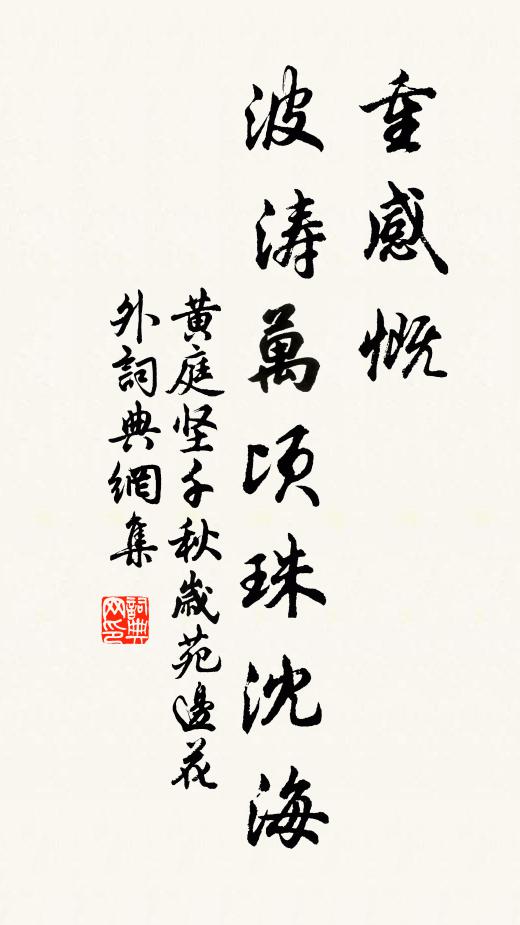 重感慨
波涛萬顷珠沈海
黄庭坚千秋歲苑邊花
外詞典網集
詞典
网印